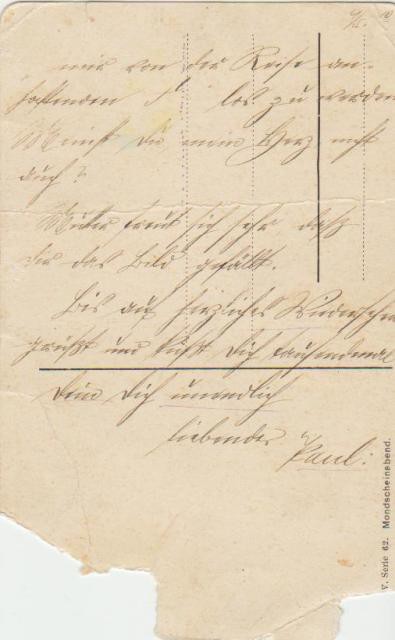 mir von der Reise an-
haftenden los zu werden
Meinst Du mein Herz nicht
auch?
Mutter freut sich sehr daß
dir das Bild gefällt.
Bis auf herzliches Wiedersehen
grüßt und küßt Dich tausendmal
Dein Dich unendlich
liebender
Paul.
V. Serie 62. Mondscheinabend.